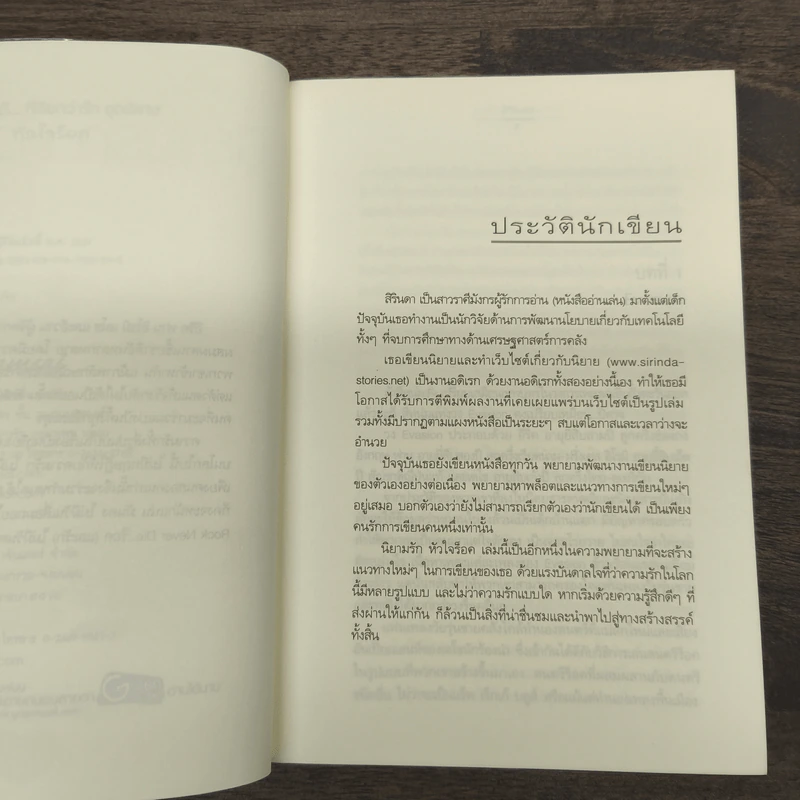 ประวัตินักเขียน
สิรินดา เป็นสาวราศีมังกรผู้รักการอ่าน (หนังสืออ่านเล่น) มาตั้งแต่เด็ก
ปัจจุบันเธอทำงานเป็นนักวิจัยด้านการพัฒนานโยบายเกี่ยวกับเทคโนโลยี
ทั้งๆ ที่จบการศึกษาทางด้านเศรษฐศาสตร์การคลัง
เธอเขียนนิยายและทำเว็บไซต์เกี่ยวกับนิยาย (www.sirinda-
stories.net) เป็นงานอดิเรก ด้วยงานอดิเรกทั้งสองอย่างนี้เอง ทำให้เธอมี
โอกาสได้รับการตีพิมพ์ผลงานที่เคยเผยแพร่บนเว็บไซต์เป็นรูปเล่ม
รวมทั้งมีปรากฏตามแผงหนังสือเป็นระยะๆ สบแต่โอกาสและเวลาว่างจะ
อำนวย
ปัจจุบันเธอยังเขียนหนังสือทุกวัน พยายามพัฒนางานเขียนนิยาย
ของตัวเองอย่างต่อเนื่อง พยายามหาพล็อตและแนวทางการเขียนใหม่ๆ
อยู่เสมอ บอกตัวเองว่ายังไม่สามารถเรียกตัวเองว่านักเขียนได้ เป็นเพียง
คนรักการเขียนคนหนึ่งเท่านั้น
นิยามรัก หัวใจร็อค เล่มนี้เป็นอีกหนึ่งในความพยายามที่จะสร้าง
แนวทางใหม่ๆ ในการเขียนของเธอ ด้วยแรงบันดาลใจที่ว่าความรักในโลก
นี้มีหลายรูปแบบ และไม่ว่าความรักแบบใด หากเริ่มด้วยความรู้สึกดีๆ ที่
ส่งผ่านให้แก่กัน ก็ล้วนเป็นสิ่งที่น่าชื่นชมและนำพาไปสู่ทางสร้างสรรค์
ทั้งสิ้น